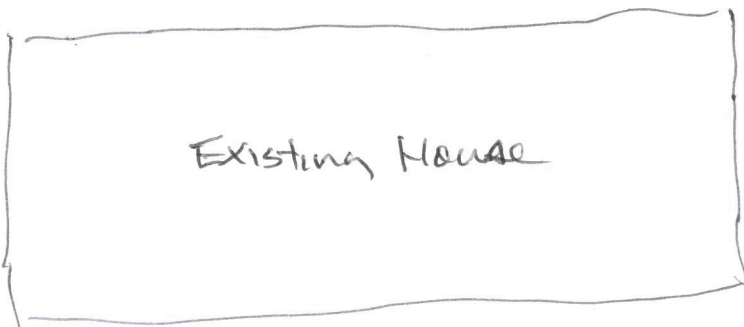 Existing House